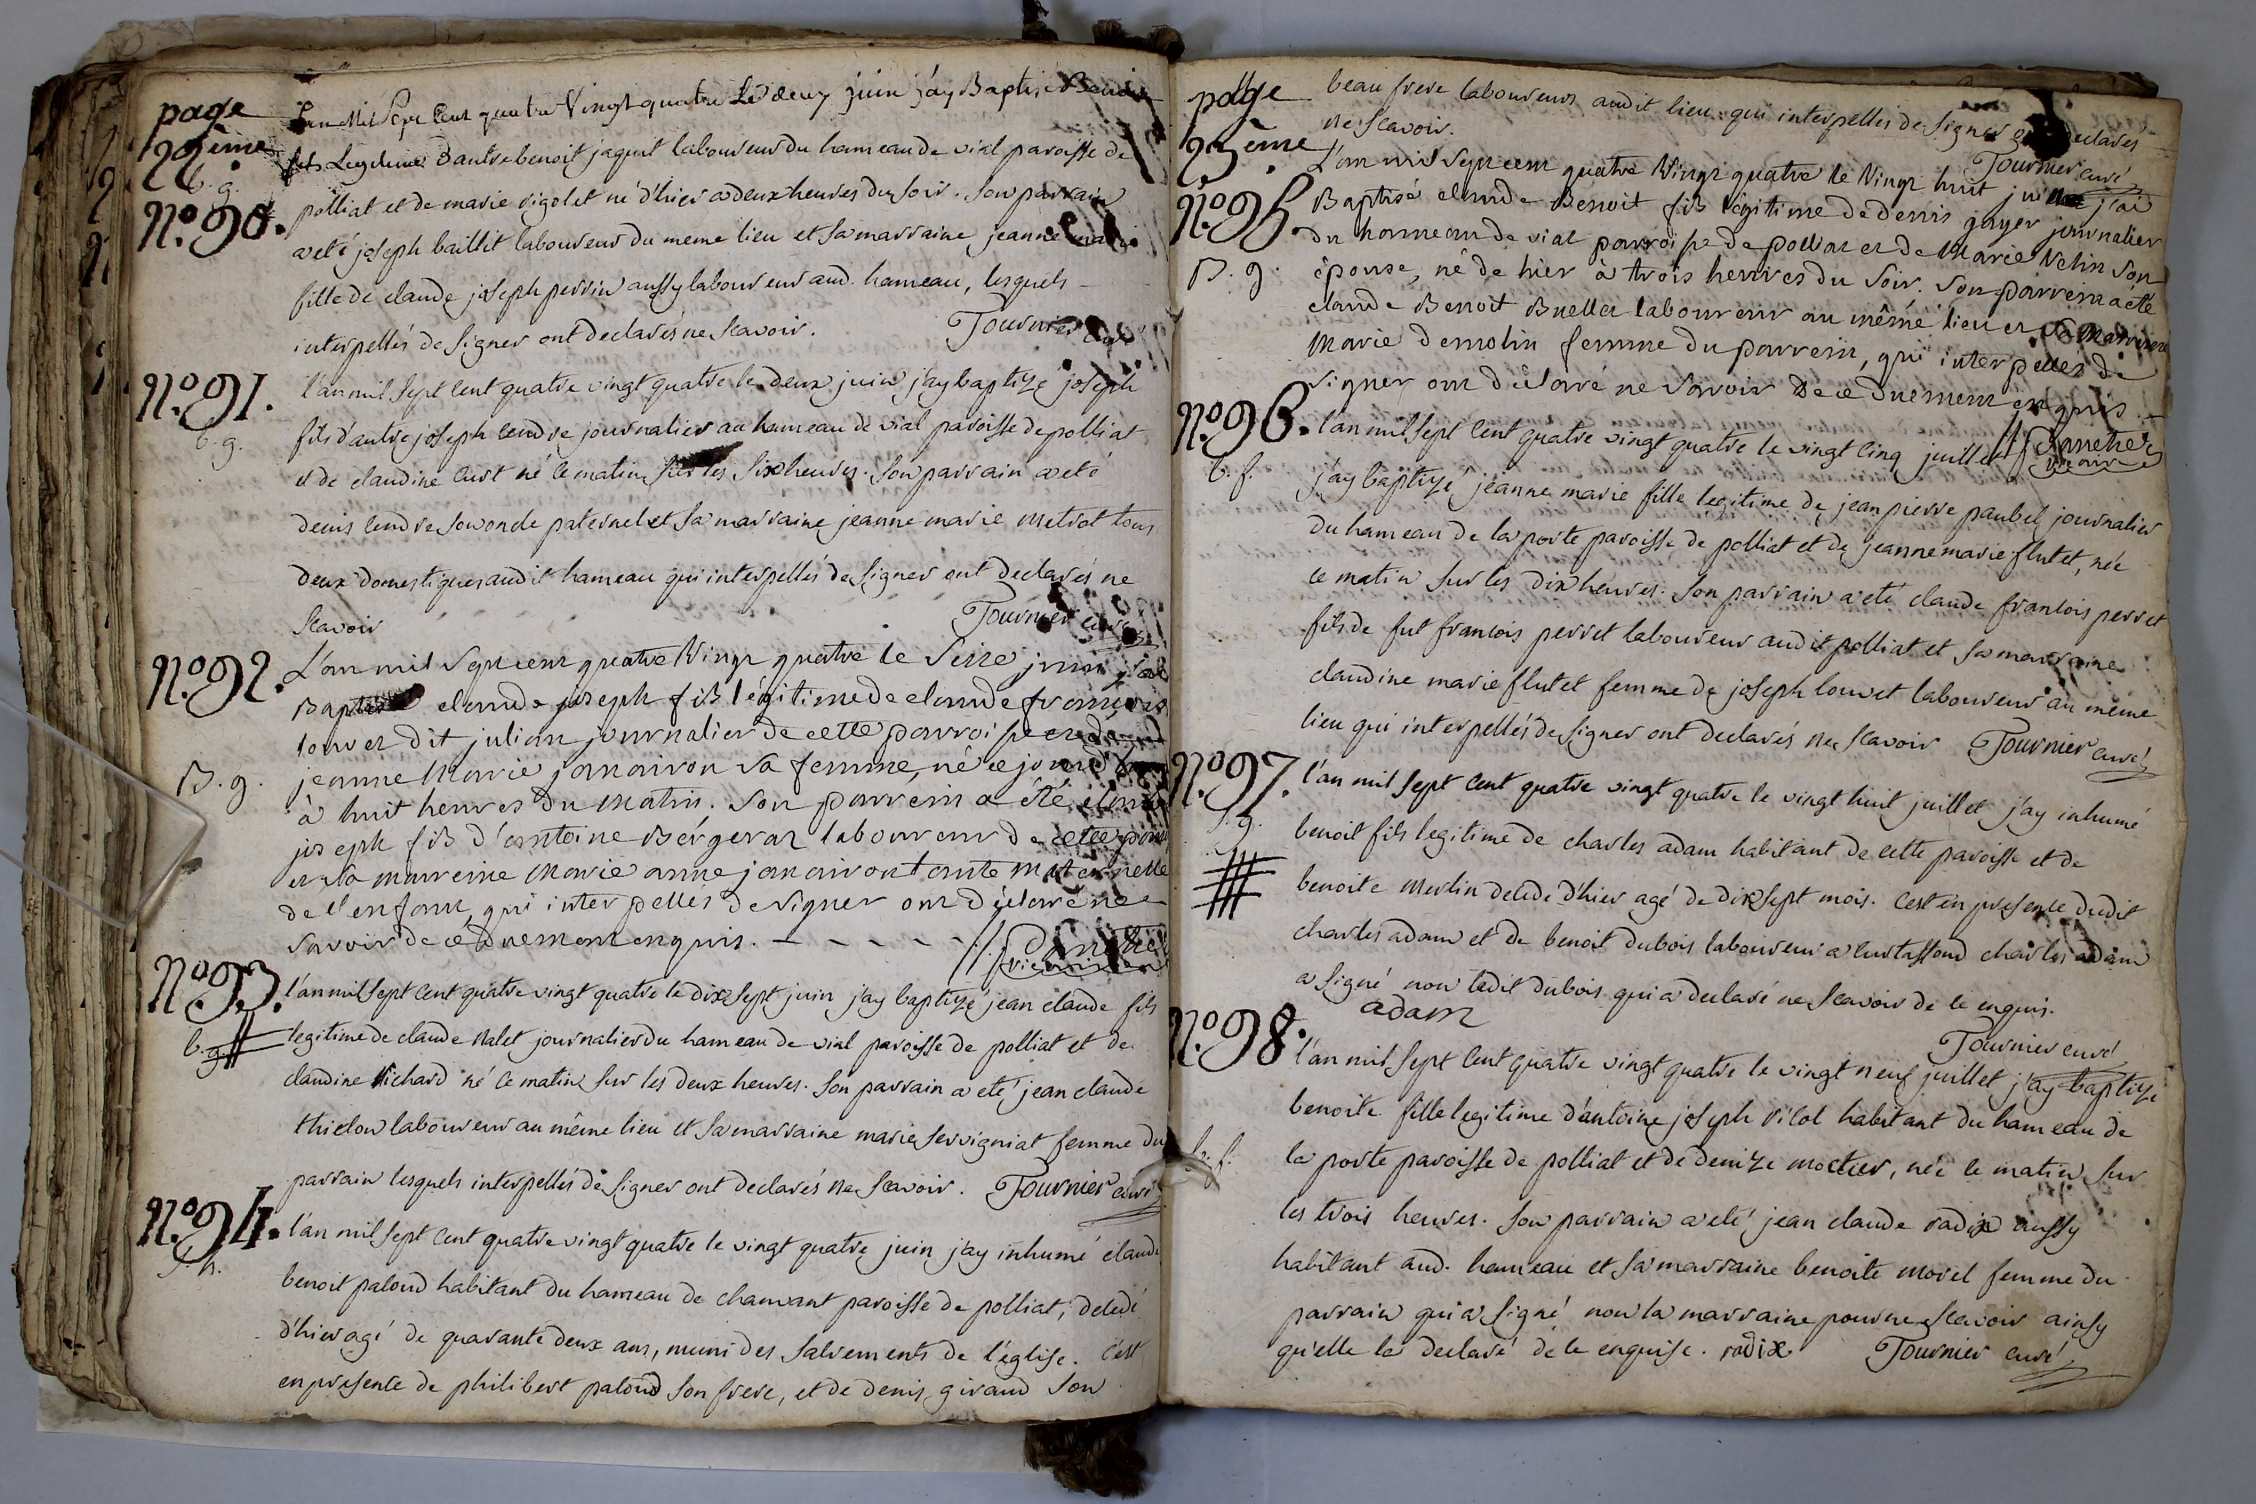 page
22ème
b. g.
N.° 90.
L'an Mil Sept Cent quatre Vingt quatre Le deux juin j'ay Baptisé Benoit
fils Legitime d'autre benoit jaquet laboureur du hameau de vial paroisse de
polliat et de marie rigolet né d'hier a deux heures du soir. Son parrain
a eté joseph baillit laboureur du meme lieu et sa marraine jeanne marie
fille de claude joseph perrin aussy laboureur aud. hameau, lesquels
interpellés de signer ont declarés ne scavoir. Tournier curé
N.° 91.
b. g.
l'an mil sept cent quatre vingt quatre le deux juin j'ay baptizé joseph
fils d'autre joseph cendre journalier au hameau de vial paroisse de polliat
et de claudine curt né ce matin sur les six heures. Son parrain a eté
denis cendre son oncle paternel et sa marraine jeanne marie metrot tous
deux domestiques audit hameau qui interpellés de signer ont declarés ne
scavoir Tournier curé
N.° 92.
B. g.
L'an mil sept cent quatre Vingt quatre le Seize juin j'ai
Baptisé claude joseph fils légitime de claude francois
louvet dit julian journalier de cette parroisse et de
jeanne Marie janairon sa femme, né ce jourd'hui
à huit heures du Matin. Son parrein a été claude
joseph fils d'antoine Bergerat laboureur de cette parr
et sa marreine Marie anne janairon tante maternelle
de l'enfant, qui interpellés de signer ont déclaré ne
savoir de ce duement enquis. - - - - -
vicaire
N.° 93.
b. g.
l'an mil sept cent quatre vingt quatre le dix sept juin j'ay baptizé jean claude fils
legitime de claude Nalet journalier du hameau de vial paroisse de polliat et de
claudine Richard né ce matin sur les deux heures. Son parrain a eté jean claude
thielon laboureur au même lieu et sa marraine marie servigniat femme du
parrain lesquels interpellés de signer ont declarés ne scavoir. Tournier curé
N.° 94.
s. h.
l'an mil sept cent quatre vingt quatre le vingt quatre juin j'ay inhumé claude
benoit paloud habitant du hameau de chamvant paroisse de polliat, decedé
d'hier agé de quarante deux ans, muni des sacrements de l'église. C'est
en presence de philibert paloud son frere, et de denis giraud son
page
23ème
beau frere laboureurs audit lieu qui interpellés de signer ont declarés
ne scavoir. Tournier curé
N.° 95.
B. g.
L'an mil sept cent quatre Vingt quatre le Vingt huit juin j'ai
Baptisé claude Benoit fils légitime de denis gayer journalier
du hameau de vial parroisse de polliat et de Marie Velin son
épouse, né de hier à trois heures du soir. Son parrein a été
claude Benoit Buellet laboureur au même lieu et sa Marreine
Marie demolin femme du parrein, qui interpellés de
signer ont déclaré ne savoir de ce duement enquis.
vicaire
N.° 96.
b. f.
l'an mil sept cent quatre vingt quatre le vingt cinq juillet
j'ay baptizé jeanne marie fille legitime de jean pierre paubel journalier
du hameau de la porte paroisse de polliat et de jeanne marie flutet, née
ce matin sur les dix heures. Son parrain a eté claude francois perret
fils de fut francois perret laboureur audit polliat et sa marraine
claudine marie flutet femme de joseph louvet laboureur au même
lieu qui interpellés de signer ont declarés ne scavoir Tournier curé
N.° 97.
s. g.
l'an mil sept cent quatre vingt quatre le vingt huit juillet j'ay inhumé
benoit fils legitime de charles adam habitant de cette paroisse et de
benoite Merlin decedé d'hier agé de dix sept mois. C'est en presence dudit
charles adam et de benoit dubois laboureur a curtassond charles adam
a signé non ledit dubois qui a declaré ne scavoir de ce enquis.
adam
Tournier curé
N.° 98.
b. f.
l'an mil sept cent quatre vingt quatre le vingt neuf juillet j'ay baptizé
benoite fille legitime d'antoine joseph vicol habitant du hameau de
la porte paroisse de polliat et de denize moctier, née ce matin sur
les trois heures. Son parrain a eté jean claude radix aussy
habitant aud. hameau et sa marraine benoite morel femme du
parrain qui a signé non la marraine pour ne scavoir ainsy
qu'elle l'a declaré de ce enquise. radix Tournier curé